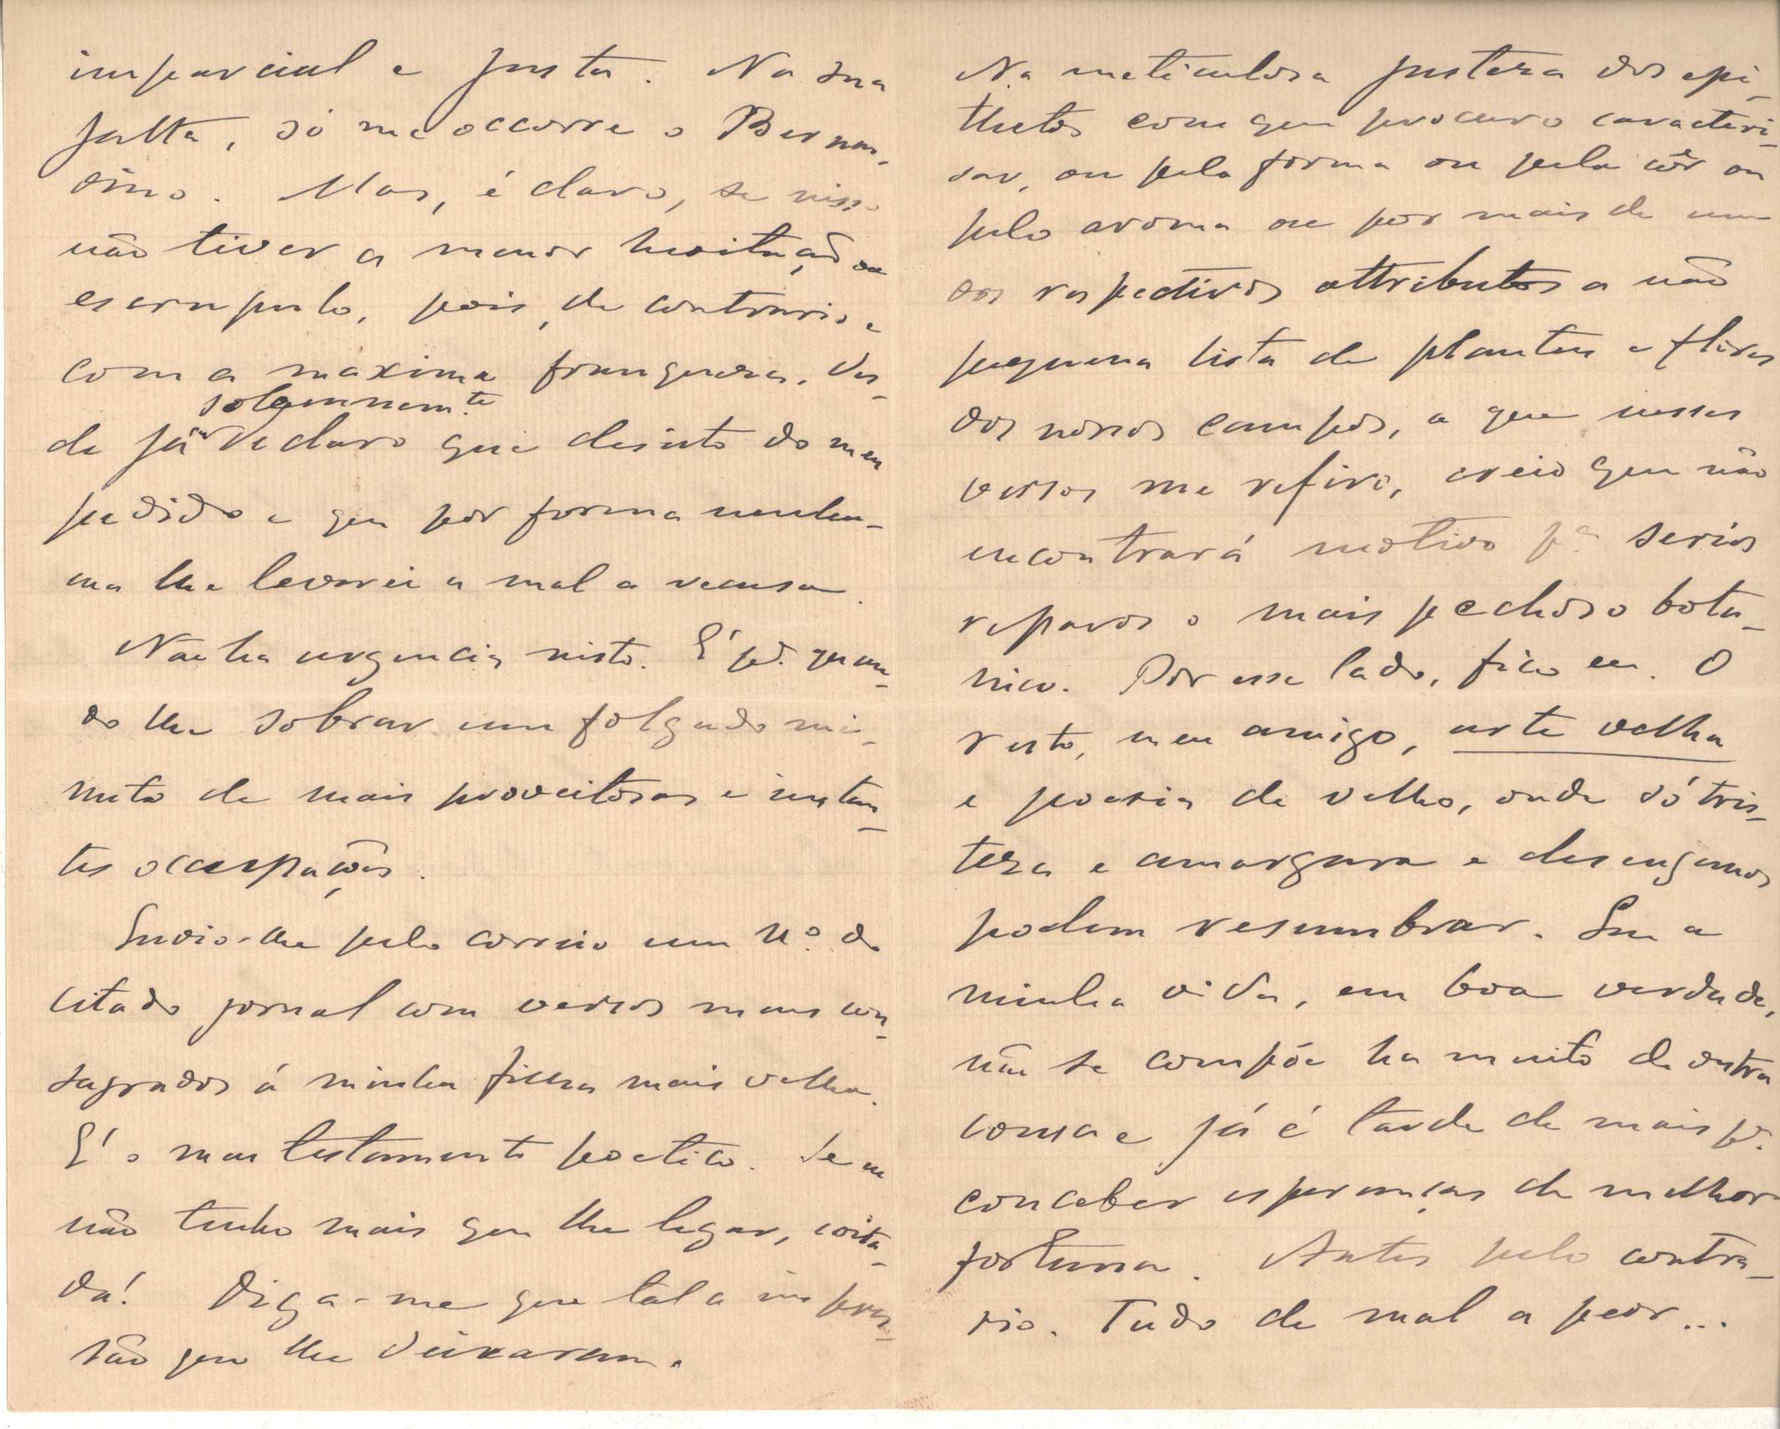 imparcial e justa. Na sua
falta, só me occorre o Bernar-
dino. Mas, é claro, se nisso
não tiver a menor hesitação ou
escrupulo, pois, de contrario e
com a maxima franqueza, des-
solemnem.te
de já declaro que desisto do meu
pedido e que por forma nenhu-
ma lhe levarei a mal a recusa.
Não ha urgencia nisto. É p.ª quan-
do lhe sobrar um folgado mi-
nuto de mais proveitosas e instan-
tes occupações.
Envio-lhe pelo correio um n.º do
citado jornal com versos meus con-
sagrados á minha filha mais velha.
É o meu testamento poetico. Se eu
não tenho mais que lhe legar, coita-
da! Diga-me que tal a impres-
são que lhe deixaram.
Na meticulosa justeza dos epi-
thetos com que procuro caracteri-
sar, ou pela forma ou pela côr ou
pelo aroma ou por mais de um
dos respectivos attributos a não
pequena lista de plantas e flores
dos nossos campos, a que nesses
versos me refiro, creio que não
encontrará motivo p.ª serios
reparos o mais pechoso bota-
nico. Por esse lado, fico eu. O
resto, meu amigo, arte velha
e poesia de velho, onde só tris-
teza e amargura e desenganos
podem resumbrar. Em a
minha vida, em boa verdade,
não se compõe ha muito de outra
cousa e já é tarde de mais p.ª
conceber esperanças de melhor
fortuna. Antes pelo contra-
rio. Tudo de mal a peor...